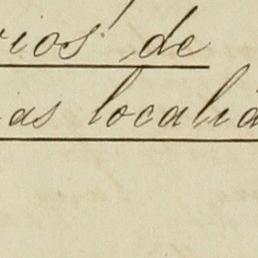 rios de
ias localid